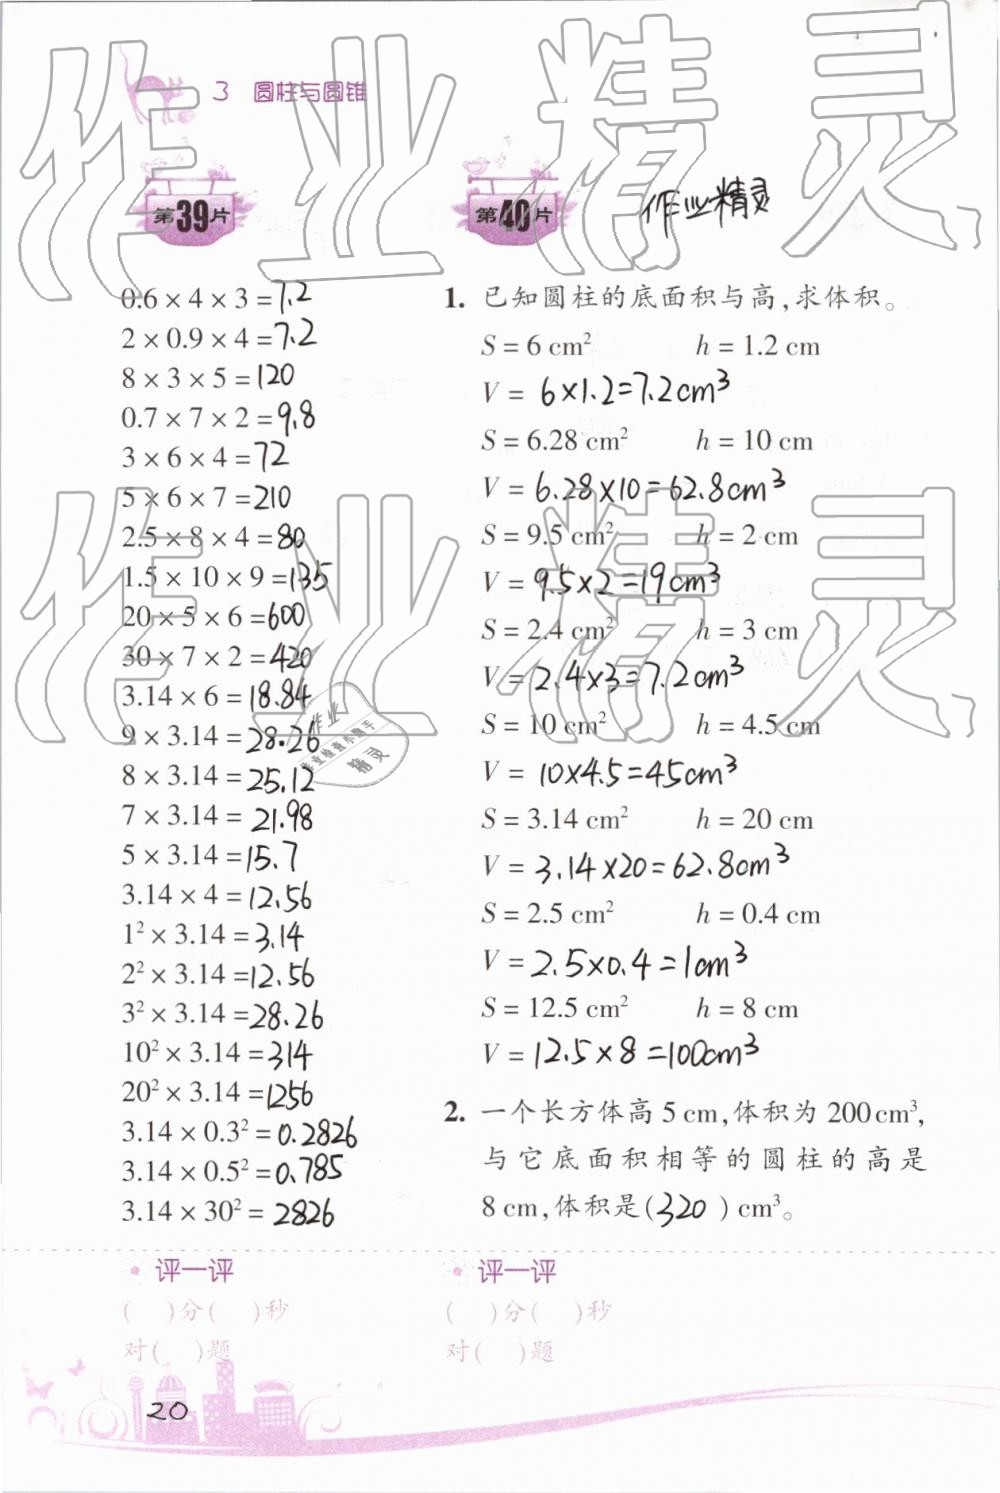 3 圆柱与圆锥
第39片
0.6 × 4 × 3 = 7.2
2 × 0.9 × 4 = 7.2
8 × 3 × 5 = 120
0.7 × 7 × 2 = 9.8
3 × 6 × 4 = 72
5 × 6 × 7 = 210
2.5 × 8 × 4 = 80
1.5 × 10 × 9 = 135
20 × 5 × 6 = 600
30 × 7 × 2 = 420
3.14 × 6 = 18.84
9 × 3.14 = 28.26
8 × 3.14 = 25.12
7 × 3.14 = 21.98
5 × 3.14 = 15.7
3.14 × 4 = 12.56
1² × 3.14 = 3.14
2² × 3.14 = 12.56
3² × 3.14 = 28.26
10² × 3.14 = 314
20² × 3.14 = 1256
3.14 × 0.3² = 0.2826
3.14 × 0.5² = 0.785
3.14 × 30² = 2826
评一评
( )分( )秒
对( )题
第40片
作业精灵
1. 已知圆柱的底面积与高,求体积。
S = 6 cm² h = 1.2 cm
V = 6×1.2=7.2cm³
S = 6.28 cm² h = 10 cm
V = 6.28×10=62.8cm³
S = 9.5 cm² h = 2 cm
V = 9.5×2=19cm³
S = 2.4 cm² h = 3 cm
V = 2.4×3=7.2cm³
S = 10 cm² h = 4.5 cm
V = 10×4.5=45cm³
S = 3.14 cm² h = 20 cm
V = 3.14×20=62.8cm³
S = 2.5 cm² h = 0.4 cm
V = 2.5×0.4=1cm³
S = 12.5 cm² h = 8 cm
V = 12.5×8=100cm³
2. 一个长方体高 5 cm,体积为 200 cm³,
与它底面积相等的圆柱的高是
8 cm,体积是(320) cm³。
评一评
( )分( )秒
对( )题
20
作业精灵
作业精灵
作业
作业检查小助手
精灵